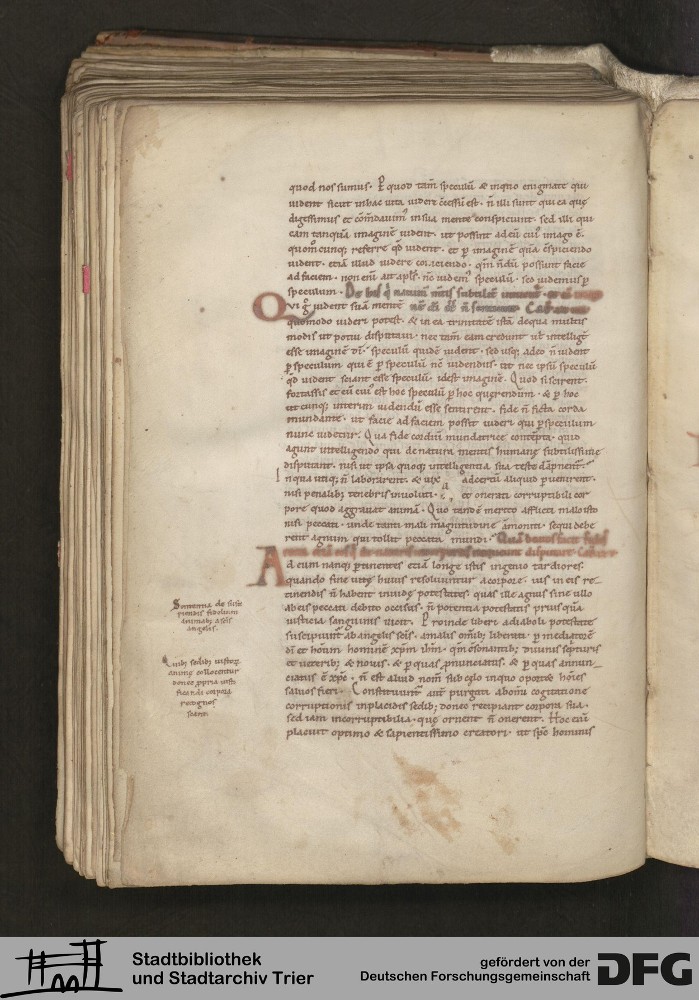 quod nos sumus. P quod tam speculū & in quo enigmate qui
uident sicut in hac uita uidere c̄cessū est. n̄ illi sunt qui ea quę
digessimus et cōm̄dauim' in sua mente conspiciunt. sed illi qui
eam tanquā imaginē uident. ut possint ad eū cui' imago ē.
quom̊cunq; referre qd̄ uident. et p imaginē quā c̄spiciendo
uident. etiā illud uidere coiciendo. qm̄ n̄dū possunt facie
ad faciem. non eni ait apl's. nc̄ uidem' speculū. sed uidemus p
speculum.
Qui g̊ uident suā mentē
quomodo uideri potest. & in ea trinitatē istā de qua multis
modis ut potui disputaui. nec tam eam credunt ul' intelliḡt
esse imaginē dī. speculū quidē uident. sed usq; adeo n̄ uident
p speculum qui ē p speculū nc̄ uidendus. ut nec ipsū speculū
qd̄ uident sciant esse speculū. idest imaginē. Quod si scirent.
fortassis et eū cui' est hoc speculū p hoc quęrendum. & p hoc
utcunq; interim uidendū esse sentirent. fide n̄ ficta corda
mundante. ut facie ad faciem possit uideri qui p speculum
nunc uidetur. Qua fide cordiū mundatrice contēpta. quid
agunt intelligendo quę de natura mentis humanę subtilissime
disputant. nisi ut ipsa quoq; intelligentia sua teste dāpnent.
In qua utiq; n̄ laborarent. & uix ad certū aliquid puenirent.
nisi penalibus tenebris inuoluti. et onerati corruptibili cor
pore quod aggrauat animā. Quo tandē merito afflicti malo isto
nisi peccati. unde tanti mali magnitudine āmoniti. sequi debe
rent agnum qui tollit peccata mundi.
Ad eum nanq; ptinentes etiā longe istis ingenio tardiores.
quando fine uitę huius resoluuntur a corpore. ius in eis re
tinendis n̄ habent inuidę potestates. quas ille agnus sine ullo
ab eis peccati debito occisus. n̄ potentia potestatis prius quā
iusticia sanguinis uicit. Proinde liberi a diaboli potestate
suscipiunt' ab angelis scīs. a malis om̄ib; liberati. p mediatorē
dī et hoīum hominē xp̄m ihm̄. qm̄ c̄sonantib; diuinis scripturis
et ueterib; & nouis. & p quas pnunciatus. & p quas annun
ciatus ē xp̄c. n̄ est aliud nom̄ sub cęlo in quo oportet hoīes
saluos fieri. Constituunt' aut' purgati ab omī cogitatione
corruptionis in placidis sedib; donec recipiant corpora sua.
sed iam incorruptibilia. quę ornent n̄ onerent. Hoc enī
placuit optimo & sapientissimo creatori. ut sp̄c hominis
Sententia de susci
piendis fidelium
animab; a scīs
angelis.
Quib; sedib; iustorū
animę collocentur
donec ppria iusti
ficandi corpora
Stadtbibliothek
und Stadtarchiv Trier
gefördert von der
Deutschen Forschungsgemeinschaft
DFG